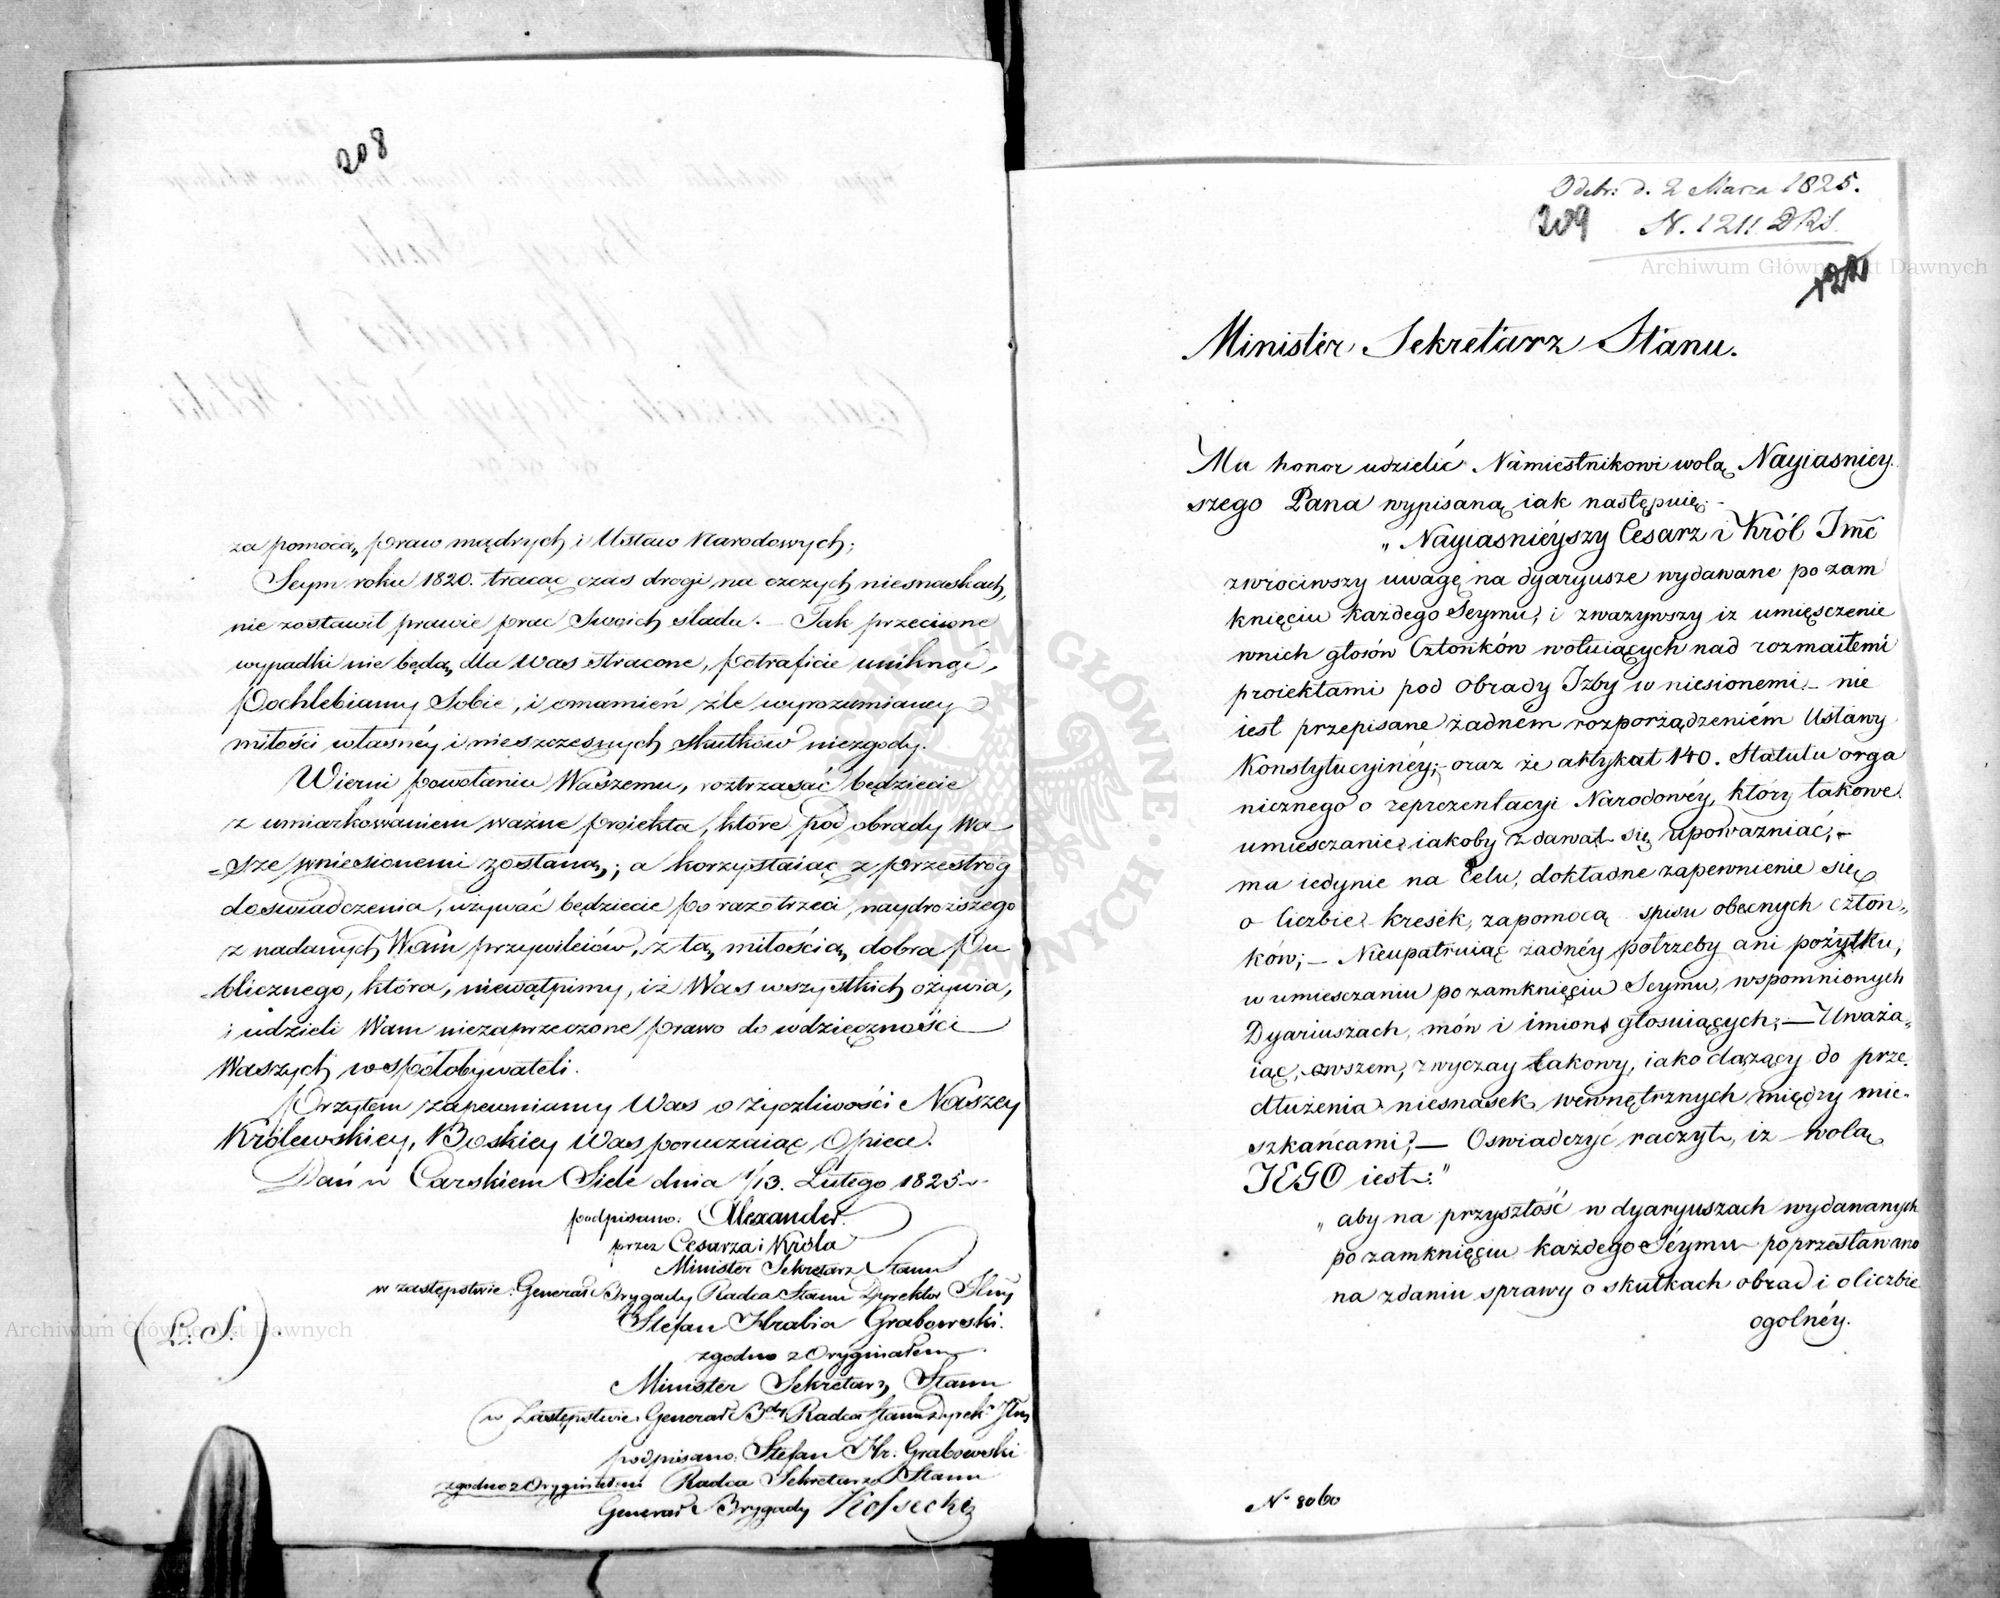 208
za pomocą praw mądrych i Ustaw Narodowych;
Seym roku 1820. tracąc czas drogi na czczych niesnaskach,
nie zostawił prawie prac Swoich śladu. – Tak przeciwne
wypadki nie będą dla Was stracone, potraficie uniknąć,
Pochlebiamy Sobie, i omamień źle wyrozumianey
miłości własnéy i nieszczęsnych skutków niezgody.
Wierni powołaniu Waszemu, roztrząsać będziecie
z umiarkowaniem ważne proiekta, które pod obrady Wa
-sze wniesionemi zostaną; a korzystaiąc z przestróg
doświadczenia, używać będziecie po raz trzeci, naydroższego
z nadanych Wam przywileiów, z tą miłością dobra Pu
-blicznego, która, niewątpimy, iż Was wszystkich ożywia,
i udzieli Wam niezaprzeczone prawo do wdzięczności
Waszych współobywateli.
Przytem zapewniamy Was o życzliwości Naszey
Królewskiey, Boskiey Was poruczaiąc Opiece.
Dań w Carskiem Siele dnia 1/13. Lutego 1825 r.
podpisano: Alexander.
przez Cesarza i Króla
Minister Sekretarz Stanu
w zastępstwie: Generał Brygady Radca Stanu Dyrektor Jlny
Stefan Hrabia Grabowski.
(L. S.)
zgodno z Oryginałem
Minister Sekretarz Stanu
w Zastępstwie: Generał Bdy Radca Stanu Dyrekr Jlny
podpisano: Stefan Hr. Grabowski
zgodno z Oryginałem Radca Sekretarz Stanu
Generał Brygady Kossecki
Odebr: d. 2 Marca 1825.
209 N. 1211 DRS.
122
Minister Sekretarz Stanu.
Ma honor udzielić Namiestnikowi wolą Nayiasniey-
szego Pana wypisaną iak następuie:
„Nayiasniéyszy Cesarz i Król Jmć
zwróciwszy uwagę na dyaryusze wydawane po zam
knięciu każdego Seymu, i zważywszy iż umięszczenie
wnich głosów Członków wotuiących nad rozmaitemi
proiektami pod obrady Izby wniesionemi – nie
iest przepisane żadném rozporządzeniém Ustawy
Konstytucyinéy; oraz że artykuł 140. Statutu orga
nicznego o reprezentacyi Narodowéy, który takowe
umiesczanie iakoby zdawał się upoważniać, –
ma iedynie na Celu, dokładne zapewnienie się
o liczbie kresek, zapomocą spisu obecnych człon„
ków; – Nieupatruiąc żadnéy potrzeby ani pożytku,
w umiesczaniu po zamknięciu Seymu, wspomnionych
Dyariuszach, mów i imion głosuiących; – Uważa„
iąc, owszem, zwyczay takowy, iako dążący do prze-
dłużenia niesnasek wewnętrznych między mie-
szkańcami; – Oswiadczyć raczył, iż wolą
JEGO iest:"
„aby na przyszłość w dyaryuszach wydawanych
po zamknięciu każdego Séymu poprzestawano
na zdaniu sprawy o skutkach obrad i o liczbie
ogolnéy.
No 8060
Archiwum Główne Akt Dawnych
Archiwum Główne Akt Dawnych
ARCHIWUM GŁÓWNE AKT DAWNYCH